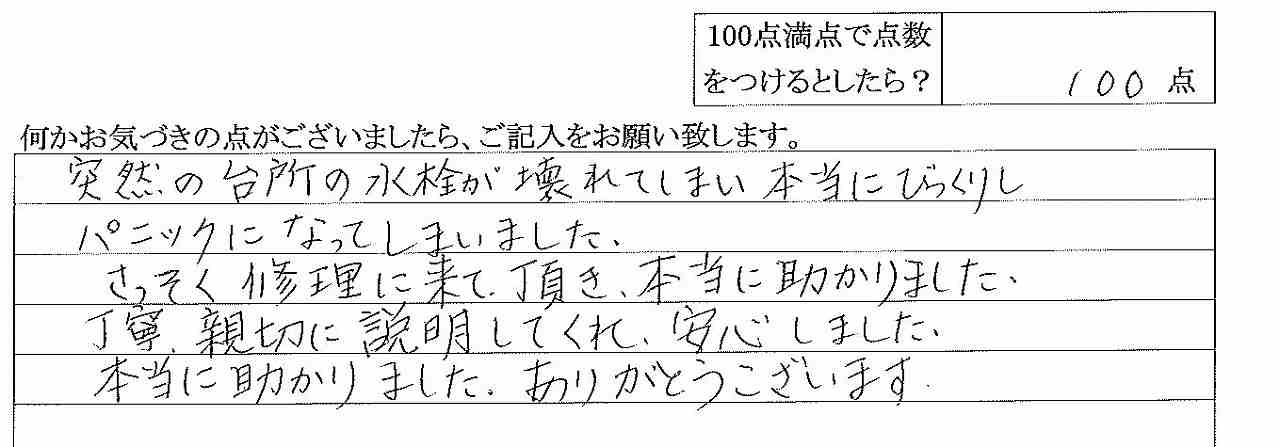 100点満点で点数
をつけるとしたら？
100 点
何かお気づきの点がございましたら、ご記入をお願い致します。
突然の台所の水栓が壊れてしまい本当にびっくりし
パニックになってしまいました、
さっそく修理に来て、頂き、本当に助かりました、
丁寧、親切に説明してくれ、安心しました、
本当に助かりました、ありがとうございます.